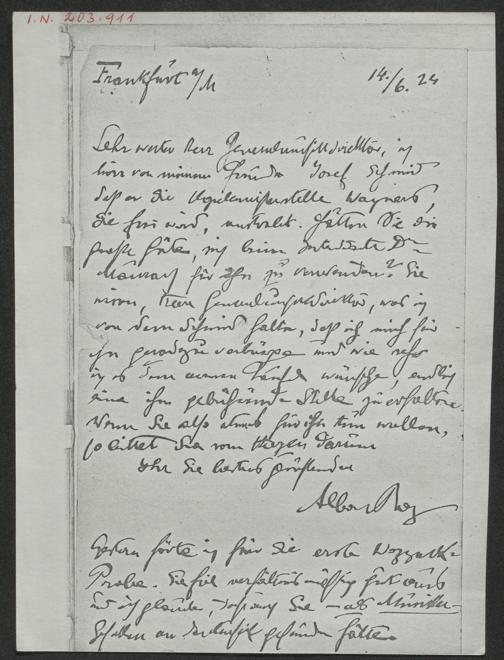 I.N. 203.911
Frankfurt a/M 14./6. 24
Sehr werter Herr Generalmusikdirektor, ich
höre von meinem Freunde Josef Schmid
daß er die Kapellmeisterstelle Wagners,
die frei wird, anstrebt. Hätten Sie die
große Güte, sich beim Intendanten Dr
für ihn zu verwenden? Sie
wissen, Herr Generalmusikdirektor, was ich
von dem Schmid halte, daß ich mich für
ihn geradezu verbürge und wie sehr
ich es dem armen Kerl wünsche, endlich
eine ihm gebührende Stelle zu erhalten.
Wenn Sie also etwas für ihn tun wollen,
so bittet Sie vom Herzen darum
Ihr Sie bestens grüßender
Alban Berg
Gestern hörte ich hier die erste Wozzeck-
Probe. Sie fiel verhältnismäßig gut aus
und ich glaube, daß auch Sie – als Musiker –
Gefallen an der Musik gefunden hätten